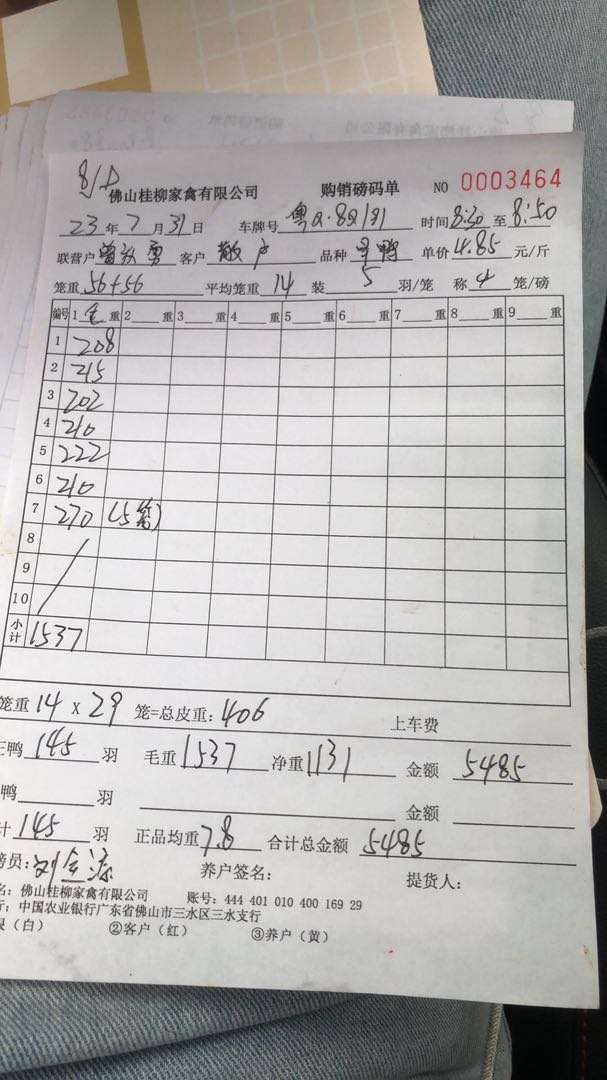 佛山桂柳家禽有限公司 购销磅码单 NO 0003464
23年7月31日 车牌号 粤Q·8Q191 时间8:30至8:50
联营户 客户 散户 品种 鸭 单价4.85元/斤
笼重56+56 平均笼重14 装5羽/笼 称4笼/磅
编号 1毛重 2重 3重 4重 5重 6重 7重 8重 9重
1 208
2 215
3 202
4 210
5 222
6 210
7 270 (5笼)
8
9
10
小计 1537
笼重14 X 29 笼=总皮重:406 上车费
正鸭145羽 毛重1537 净重1131 金额 5485
鸭 羽 金额
计145羽 正品均重7.8 合计总金额 5485
磅员:刘 源 养户签名: 提货人:
名:佛山桂柳家禽有限公司 账号: 444 401 010 400 169 29
行:中国农业银行广东省佛山市三水区三水支行
(白) ②客户(红) ③养户(黄)